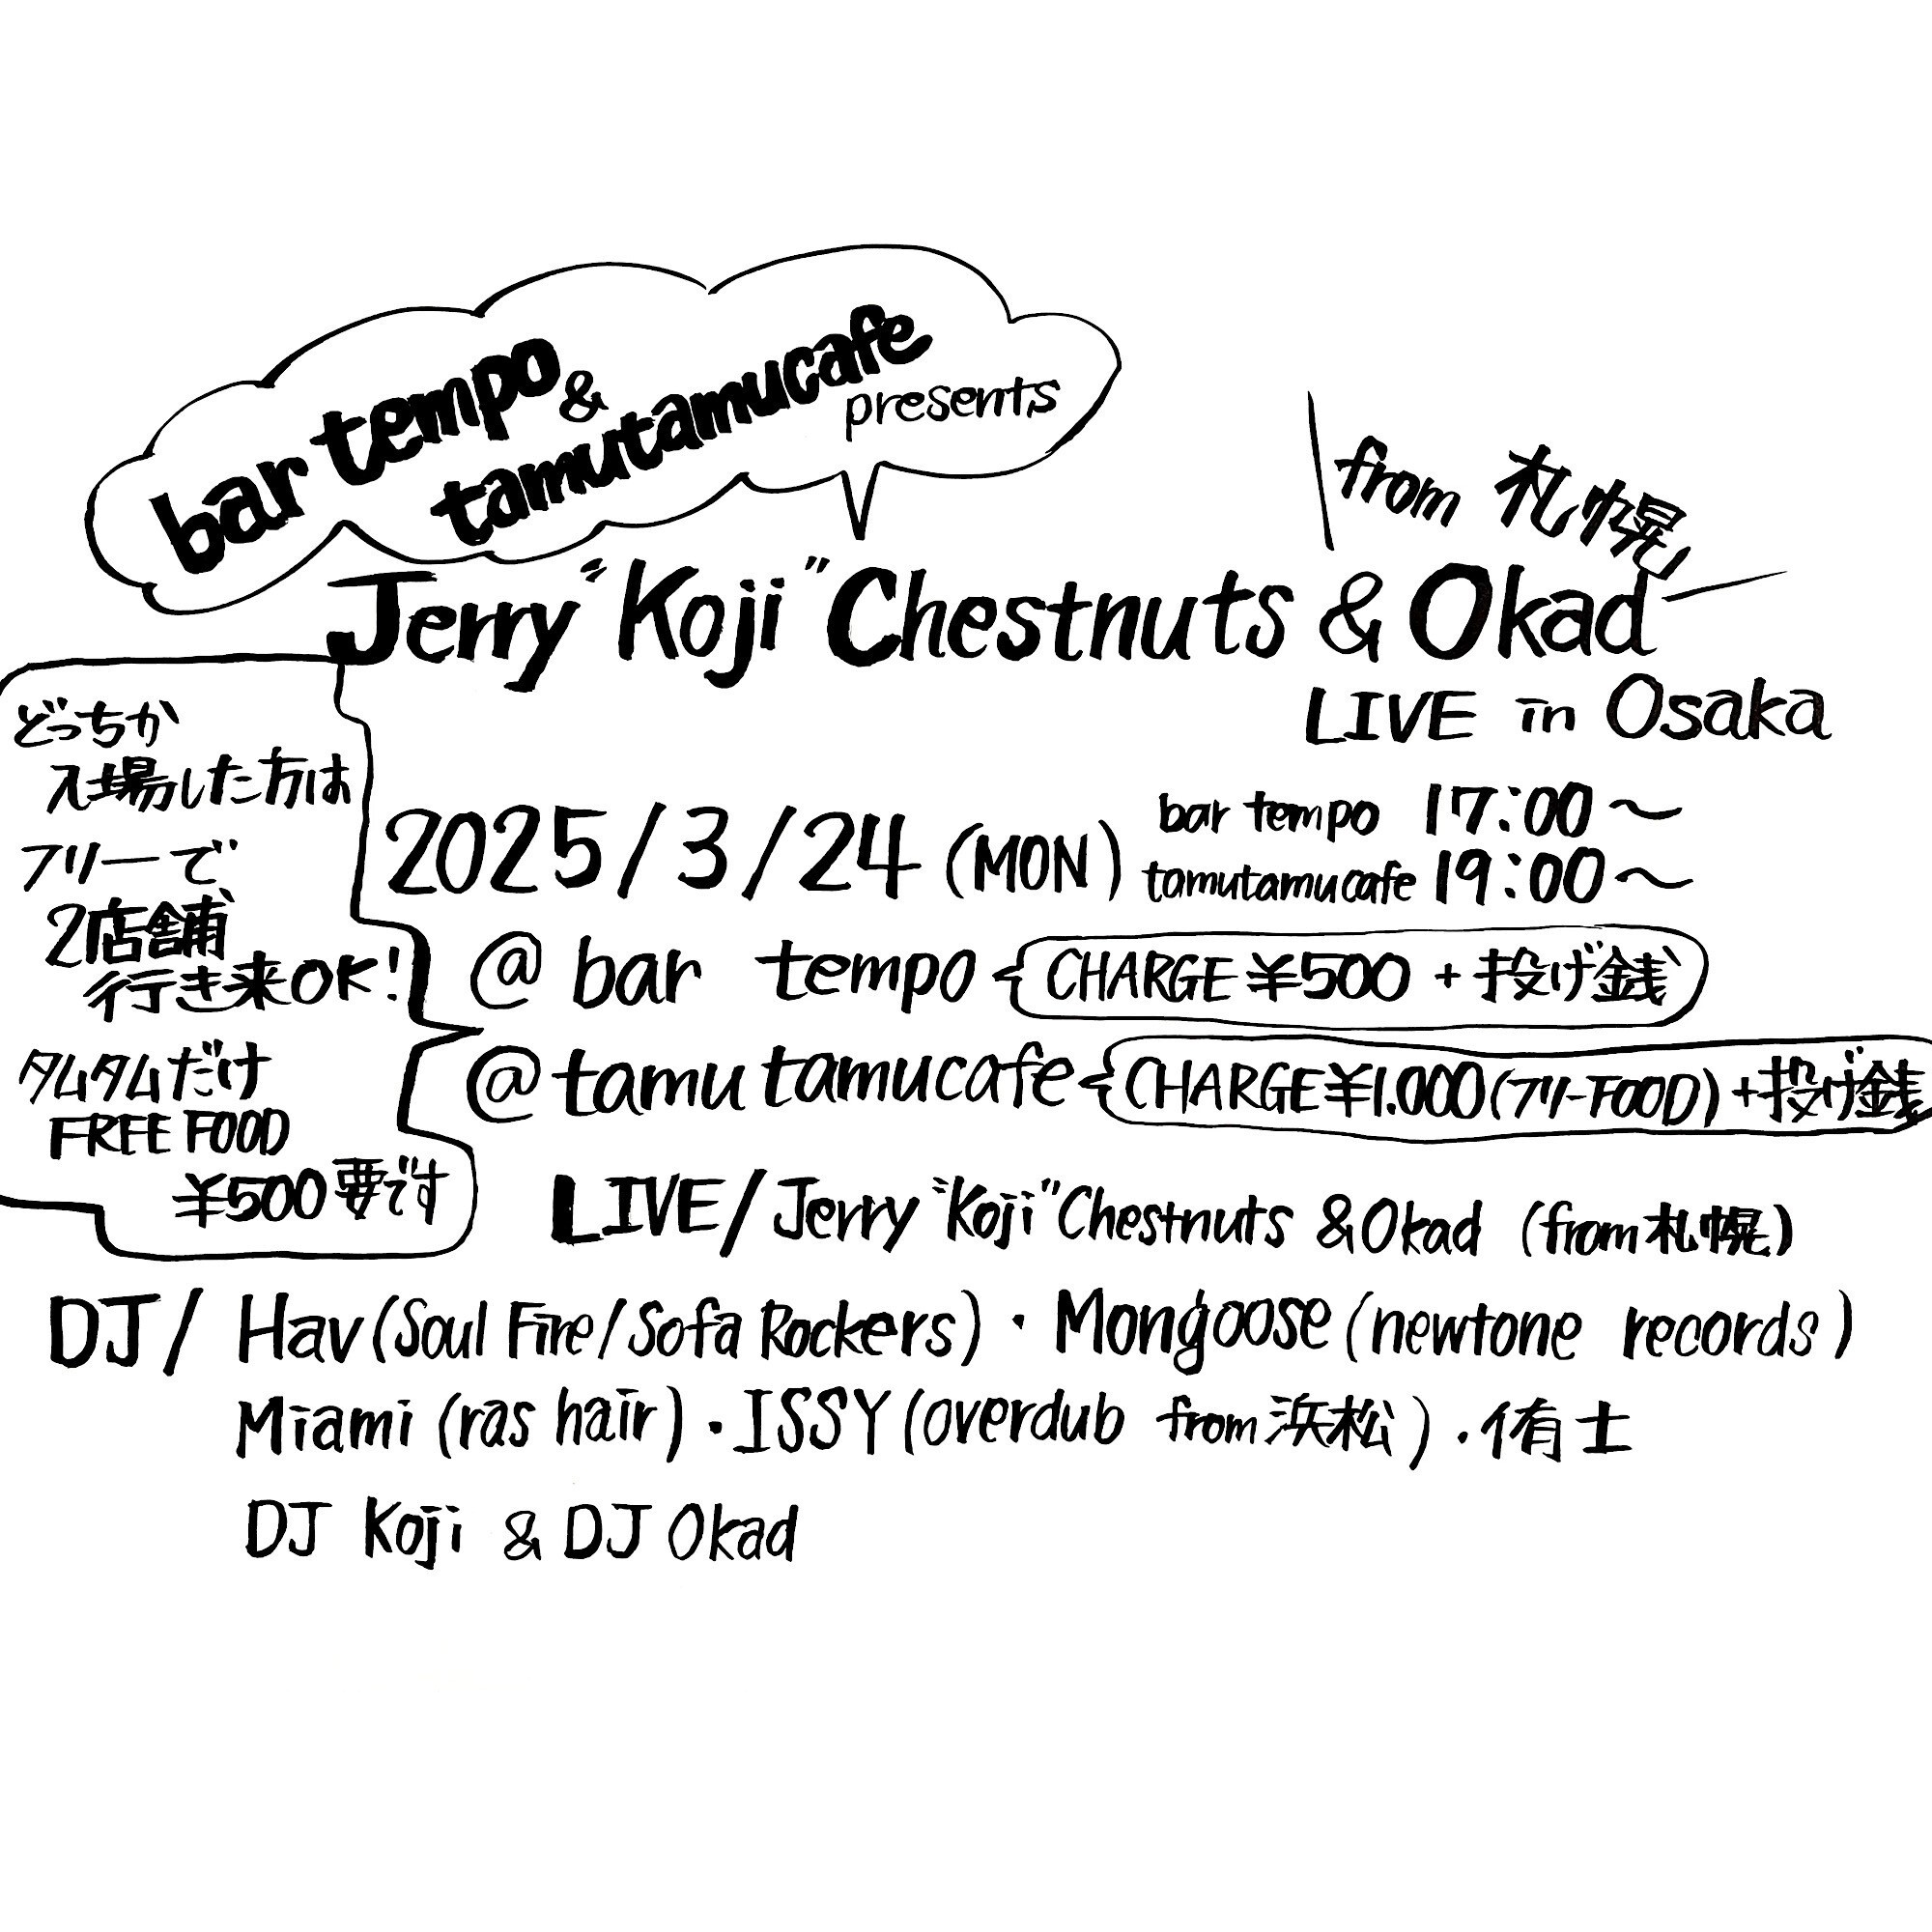 bar tempo
&
tamutamucafe
presents
from 札幌
Jerry "Koji" Chestnuts & Okad
LIVE in Osaka
どっちか
入場した方は
フリーで
2店舗
行き来OK!
タムタムだけ
FREE FOOD
¥500要です
2025/3/24 (MON)
bar tempo 17:00〜
tamutamucafe 19:00〜
@ bar tempo CHARGE ¥500 + 投げ銭
@ tamutamucafe CHARGE ¥1.000 (フリーFOOD) + 投げ銭
LIVE/ Jerry "Koji" Chestnuts & Okad (from 札幌)
DJ/ Hav (Soul Fire/Sofa Rockers)・Mongoose (newtone records)
Miami (ras hair)・ISSY (overdub from 浜松)・侑士
DJ Koji & DJ Okad